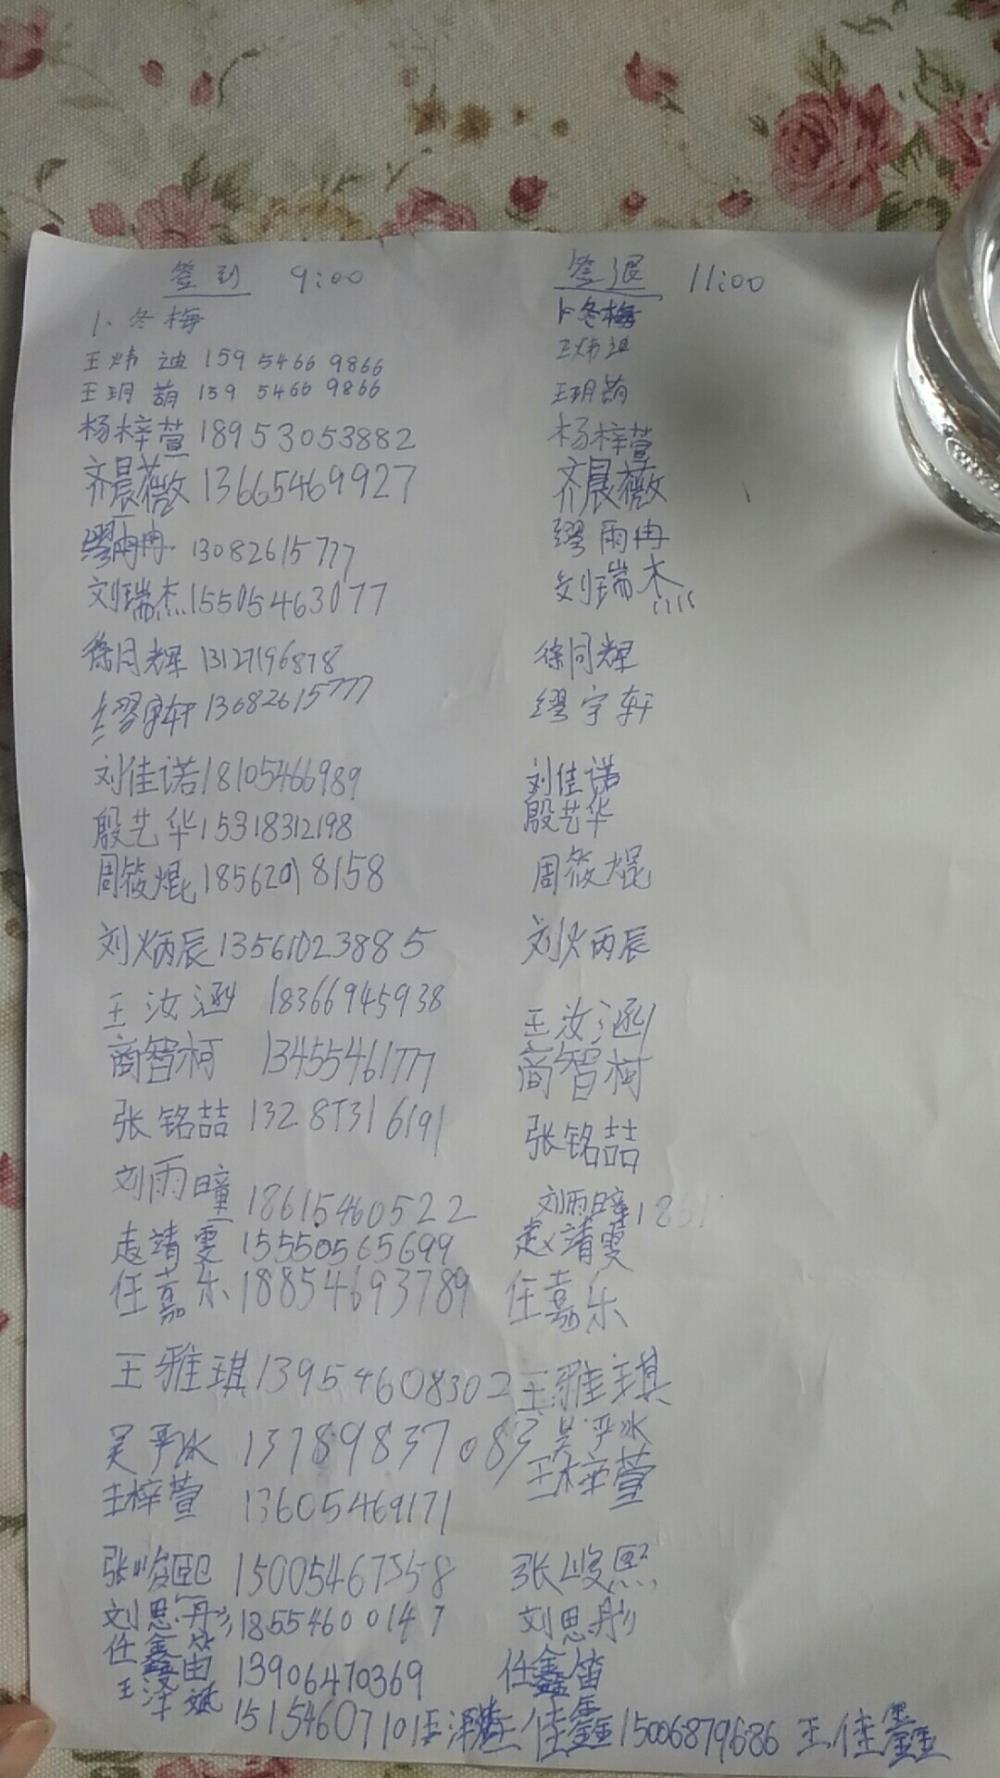 签到 9:00 签退 11:00
卜冬梅 卜冬梅
王炜迪 159 5466 9866 王炜迪
王玥萌 159 5466 9866 王玥萌
杨梓萱 18953053882 杨梓萱
齐晨薇 13665469927 齐晨薇
缪雨冉 13082615777 缪雨冉
刘瑞杰 15505463077 刘瑞杰
徐同辉 13127196878 徐同辉
缪宇轩 13682615777 缪宇轩
刘佳诺 18105466989 刘佳诺
殷艺华 15318312198 殷艺华
周筱焜 18562018158 周筱焜
刘炳辰 13561023885 刘炳辰
王汝涵 18366945938 王汝涵
商智柯 13455461777 商智柯
张铭喆 13285316191 张铭喆
刘雨瞳 18615460522 刘雨瞳 1861
赵靖雯 15550565699 赵靖雯
任嘉乐 18854693789 任嘉乐
王雅琪 13954608302 王雅琪
吴予冰 13789837083 吴予冰
王梓萱 13605469171 王梓萱
张峻熙 15005467558 张峻熙
刘思彤 18554600147 刘思彤
任鑫笛 13906470369 任鑫笛
王泽斌 15154607101 王泽斌 王佳鑫 15006879686 王佳鑫